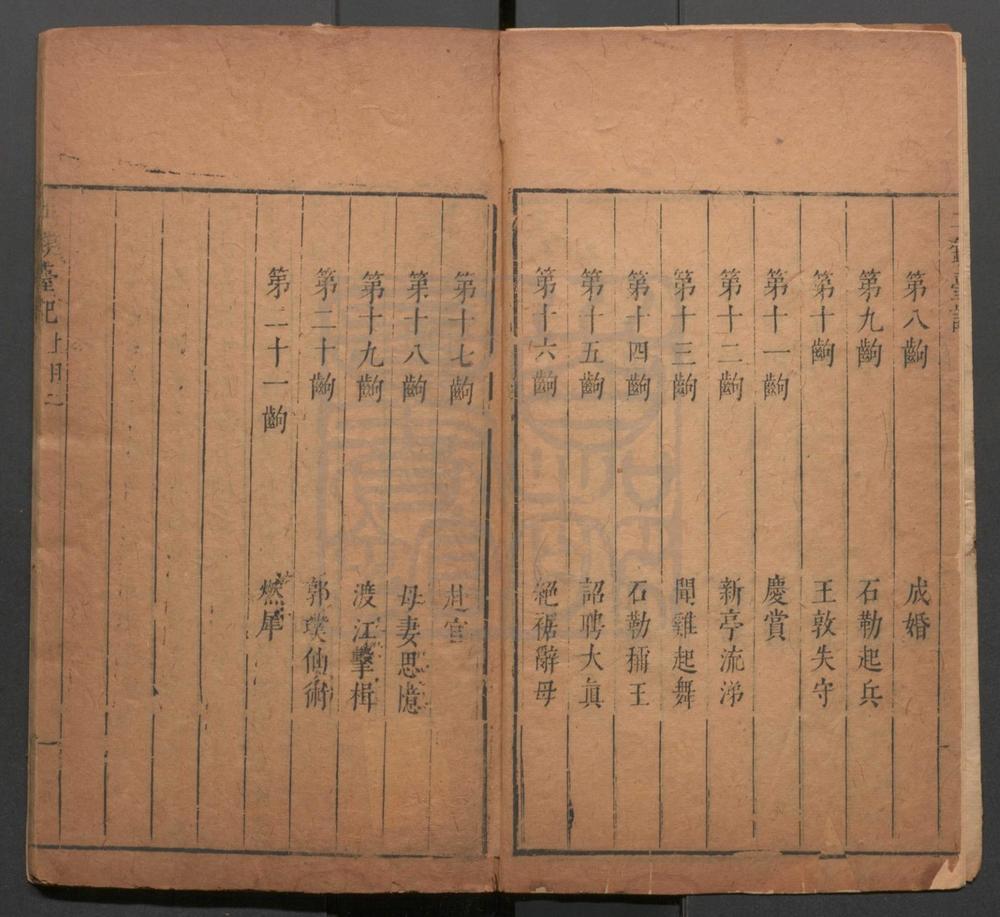 第八齣 成婚
第九齣 石勒起兵
第十齣 王敦失守
第十一齣 慶賞
第十二齣 新亭流涕
第十三齣 聞雞起舞
第十四齣 石勒稱王
第十五齣 詔聘大眞
第十六齣 絕裾辭母
第十七齣 赴官
第十八齣 母妻思憶
第十九齣 渡江擊楫
第二十齣 郭璞仙術
第二十一齣 燃犀
臺記 上目 二